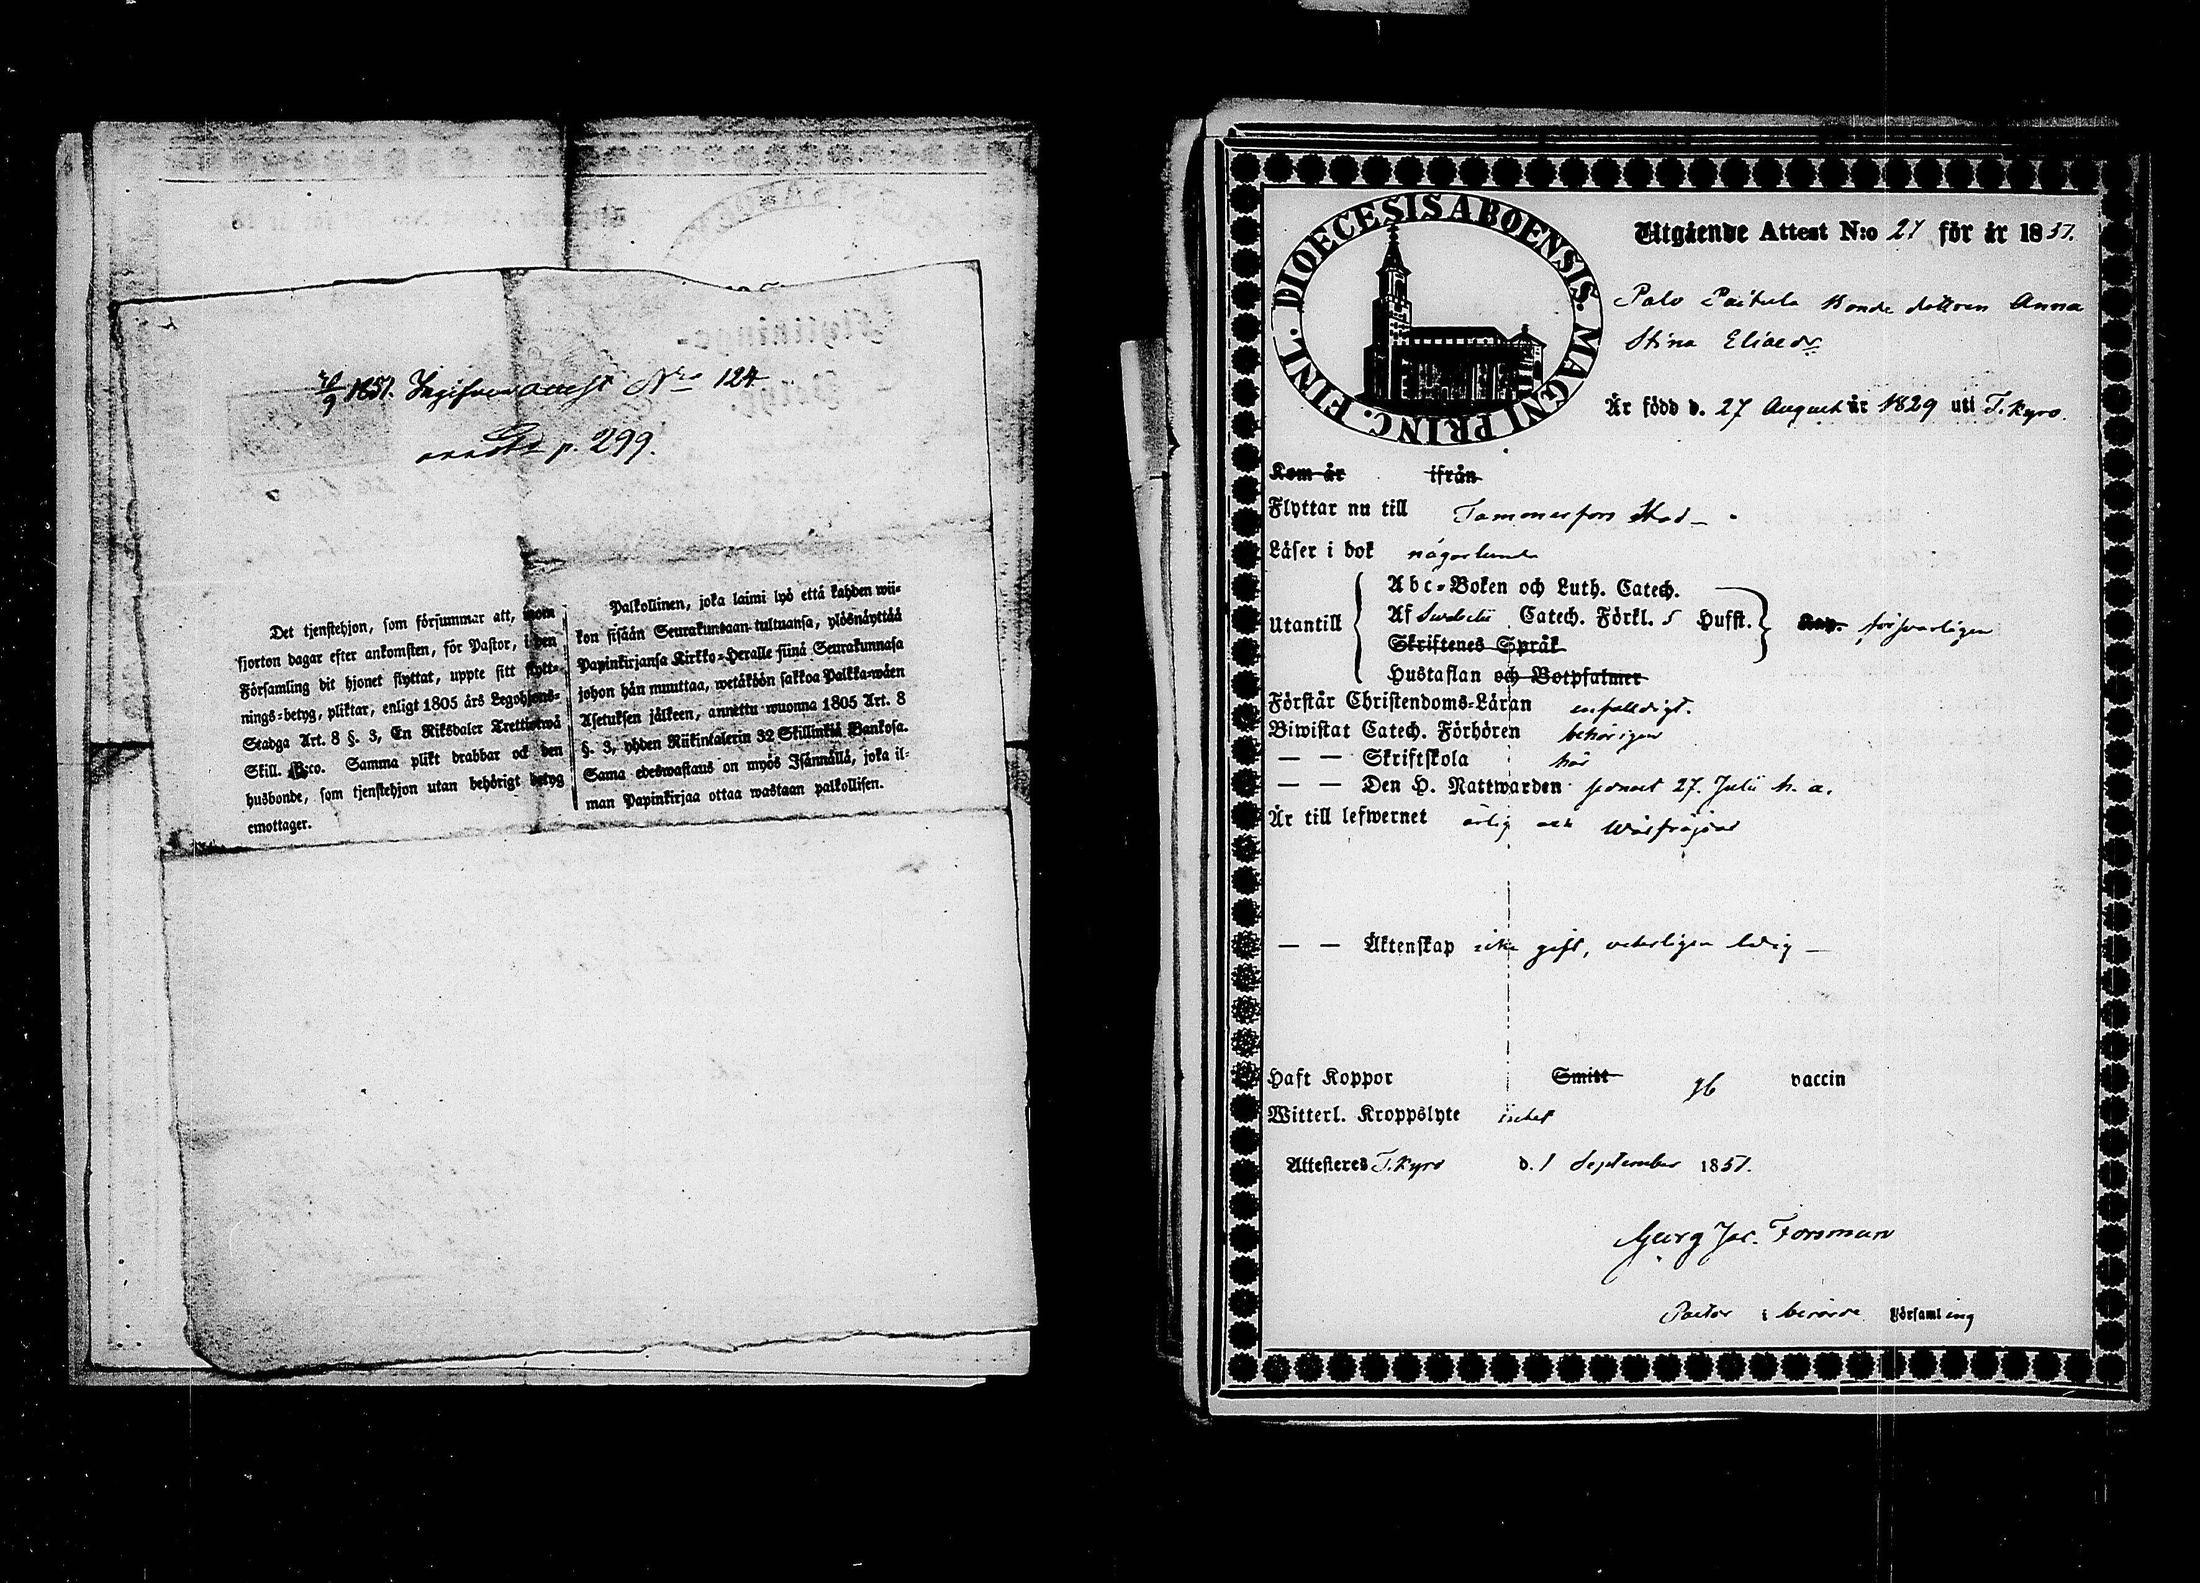 1851. Ingifven attest Nro 124
p. 299.
Det tjenstehjon, som försummar att, inom
fjorton dagar efter ankomsten, för Pastor, i den
Församling dit hjonet flyttat, uppte sitt flytt-
nings-betyg, pliktar, enligt 1805 års Legohjons-
Stadga Art. 8 §. 3, En Riksdaler Trettiotwå
Skill. B:co. Samma plikt drabbar ock den
husbonde, som tjenstehjon utan behörigt betyg
emottager.
Palkollinen, joka laimi lyö että kahden wii-
kon sisään Seurakuntaan tultuansa, ylösnäyttää
Papinkirjansa Kirkko-Heralle siinä Seurakunnasa
johon hän muuttaa, wetäköön sakkoa Palkka-wäen
Asetuksen jälkeen, annettu wuonna 1805 Art. 8
§. 3, yhden Riikintalerin 32 Skillinkiä Bankosa.
Sama edeswastaus on myös Isännällä, joka il-
man Papinkirjaa ottaa wastaan palkollisen.
DIOECESIS ABOENSIS. MAGNI PRINC. FINL.
Utgående Attest N:o 27 för år 1851.
Palo Paitula Bonde dottren Anna
Stina Eliaedr
Är född d. 27 August år 1829 uti T. Kyro.
Kom år ifrån
Flyttar nu till Tammerfors Stad
Läser i bok någorlunda
Utantill
Abc-Boken och Luth. Catech.
Af Svebelii Catech. Förkl. 5 Hufst. Kap. försvarligen
Skriftenes Språk
Hustaflan och Botpsalmer
Förstår Christendoms-Läran enfaldigt.
Biwistat Catech. Förhören behörigen
— — Skriftskola här
— — Den H. Nattwarden senast 27. Julii h. a.
Är till lefwernet ärlig och Wälfräjdad
— — Äktenskap icke gift, veterligen ledig —
Haft Koppor Smitt gb vaccin
Witterl. Kroppslyte intet
Attesteres T. Kyro d. 1 September 1851.
Georg Jac. Forsman
Pastor i berörde Församling